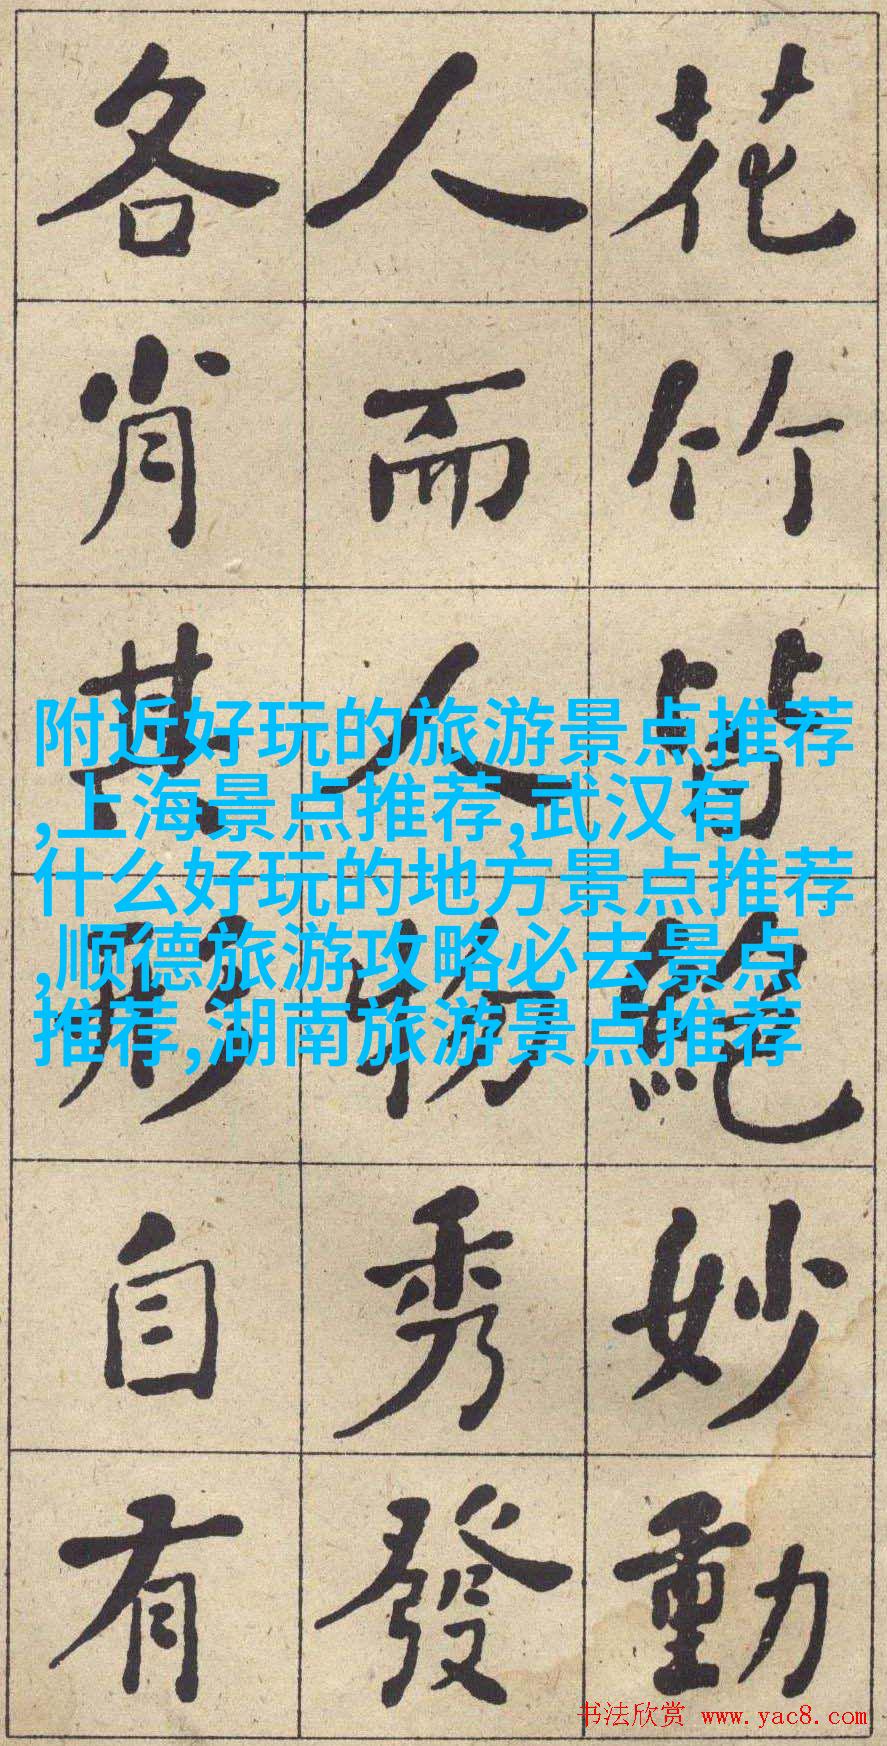 花竹皆絕妙動
人而人物秀發
各肖其形自有
附近好玩的旅游景点推荐
,上海景点推荐,武汉有
什么好玩的地方景点推荐
,顺德旅游攻略必去景点
推荐,湖南旅游景点推荐
书法欣赏 www.yac8.com